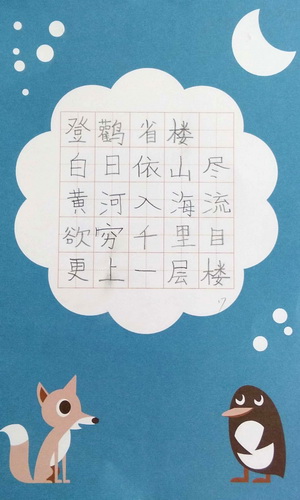 登鹳省楼
白日依山尽
黄河入海流
欲穷千里目
更上一层楼